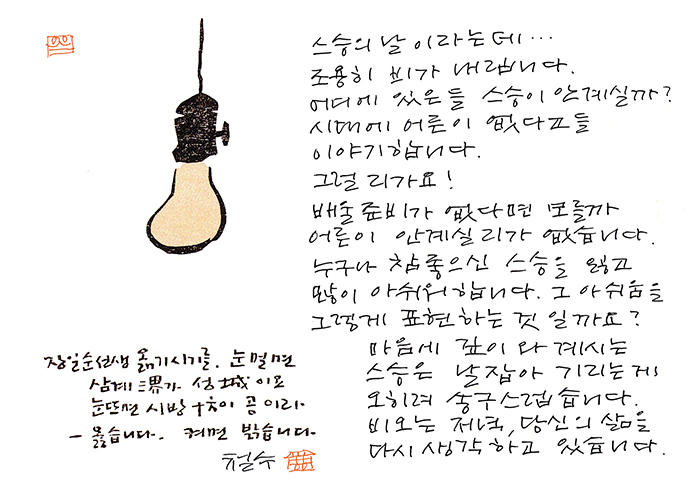 스승의 날 이라는데…
조용히 비가 내립니다.
어디에 있은들 스승이 안계실까?
시대에 어른이 없다고들
이야기합니다.
그럴리가요!
배울 준비가 없다면 모를까
어른이 안계실 리가 없습니다.
누구나 참 좋으신 스승을 잃고
많이 아쉬워합니다. 그 아쉬움을
그렇게 표현하는 것 일까요?
마음에 깊이 와 계시는
스승은 날잡아 기리는게
오히려 송구스럽습니다.
비오는 저녁, 당신의 삶을
다시 생각하고 있습니다.
장일순선생 옮기시기를. 눈멀면
삼계三界가 성城이고
눈뜨면 시방十方이 공이라.
- 옳습니다. 켜면 밝습니다.
철수